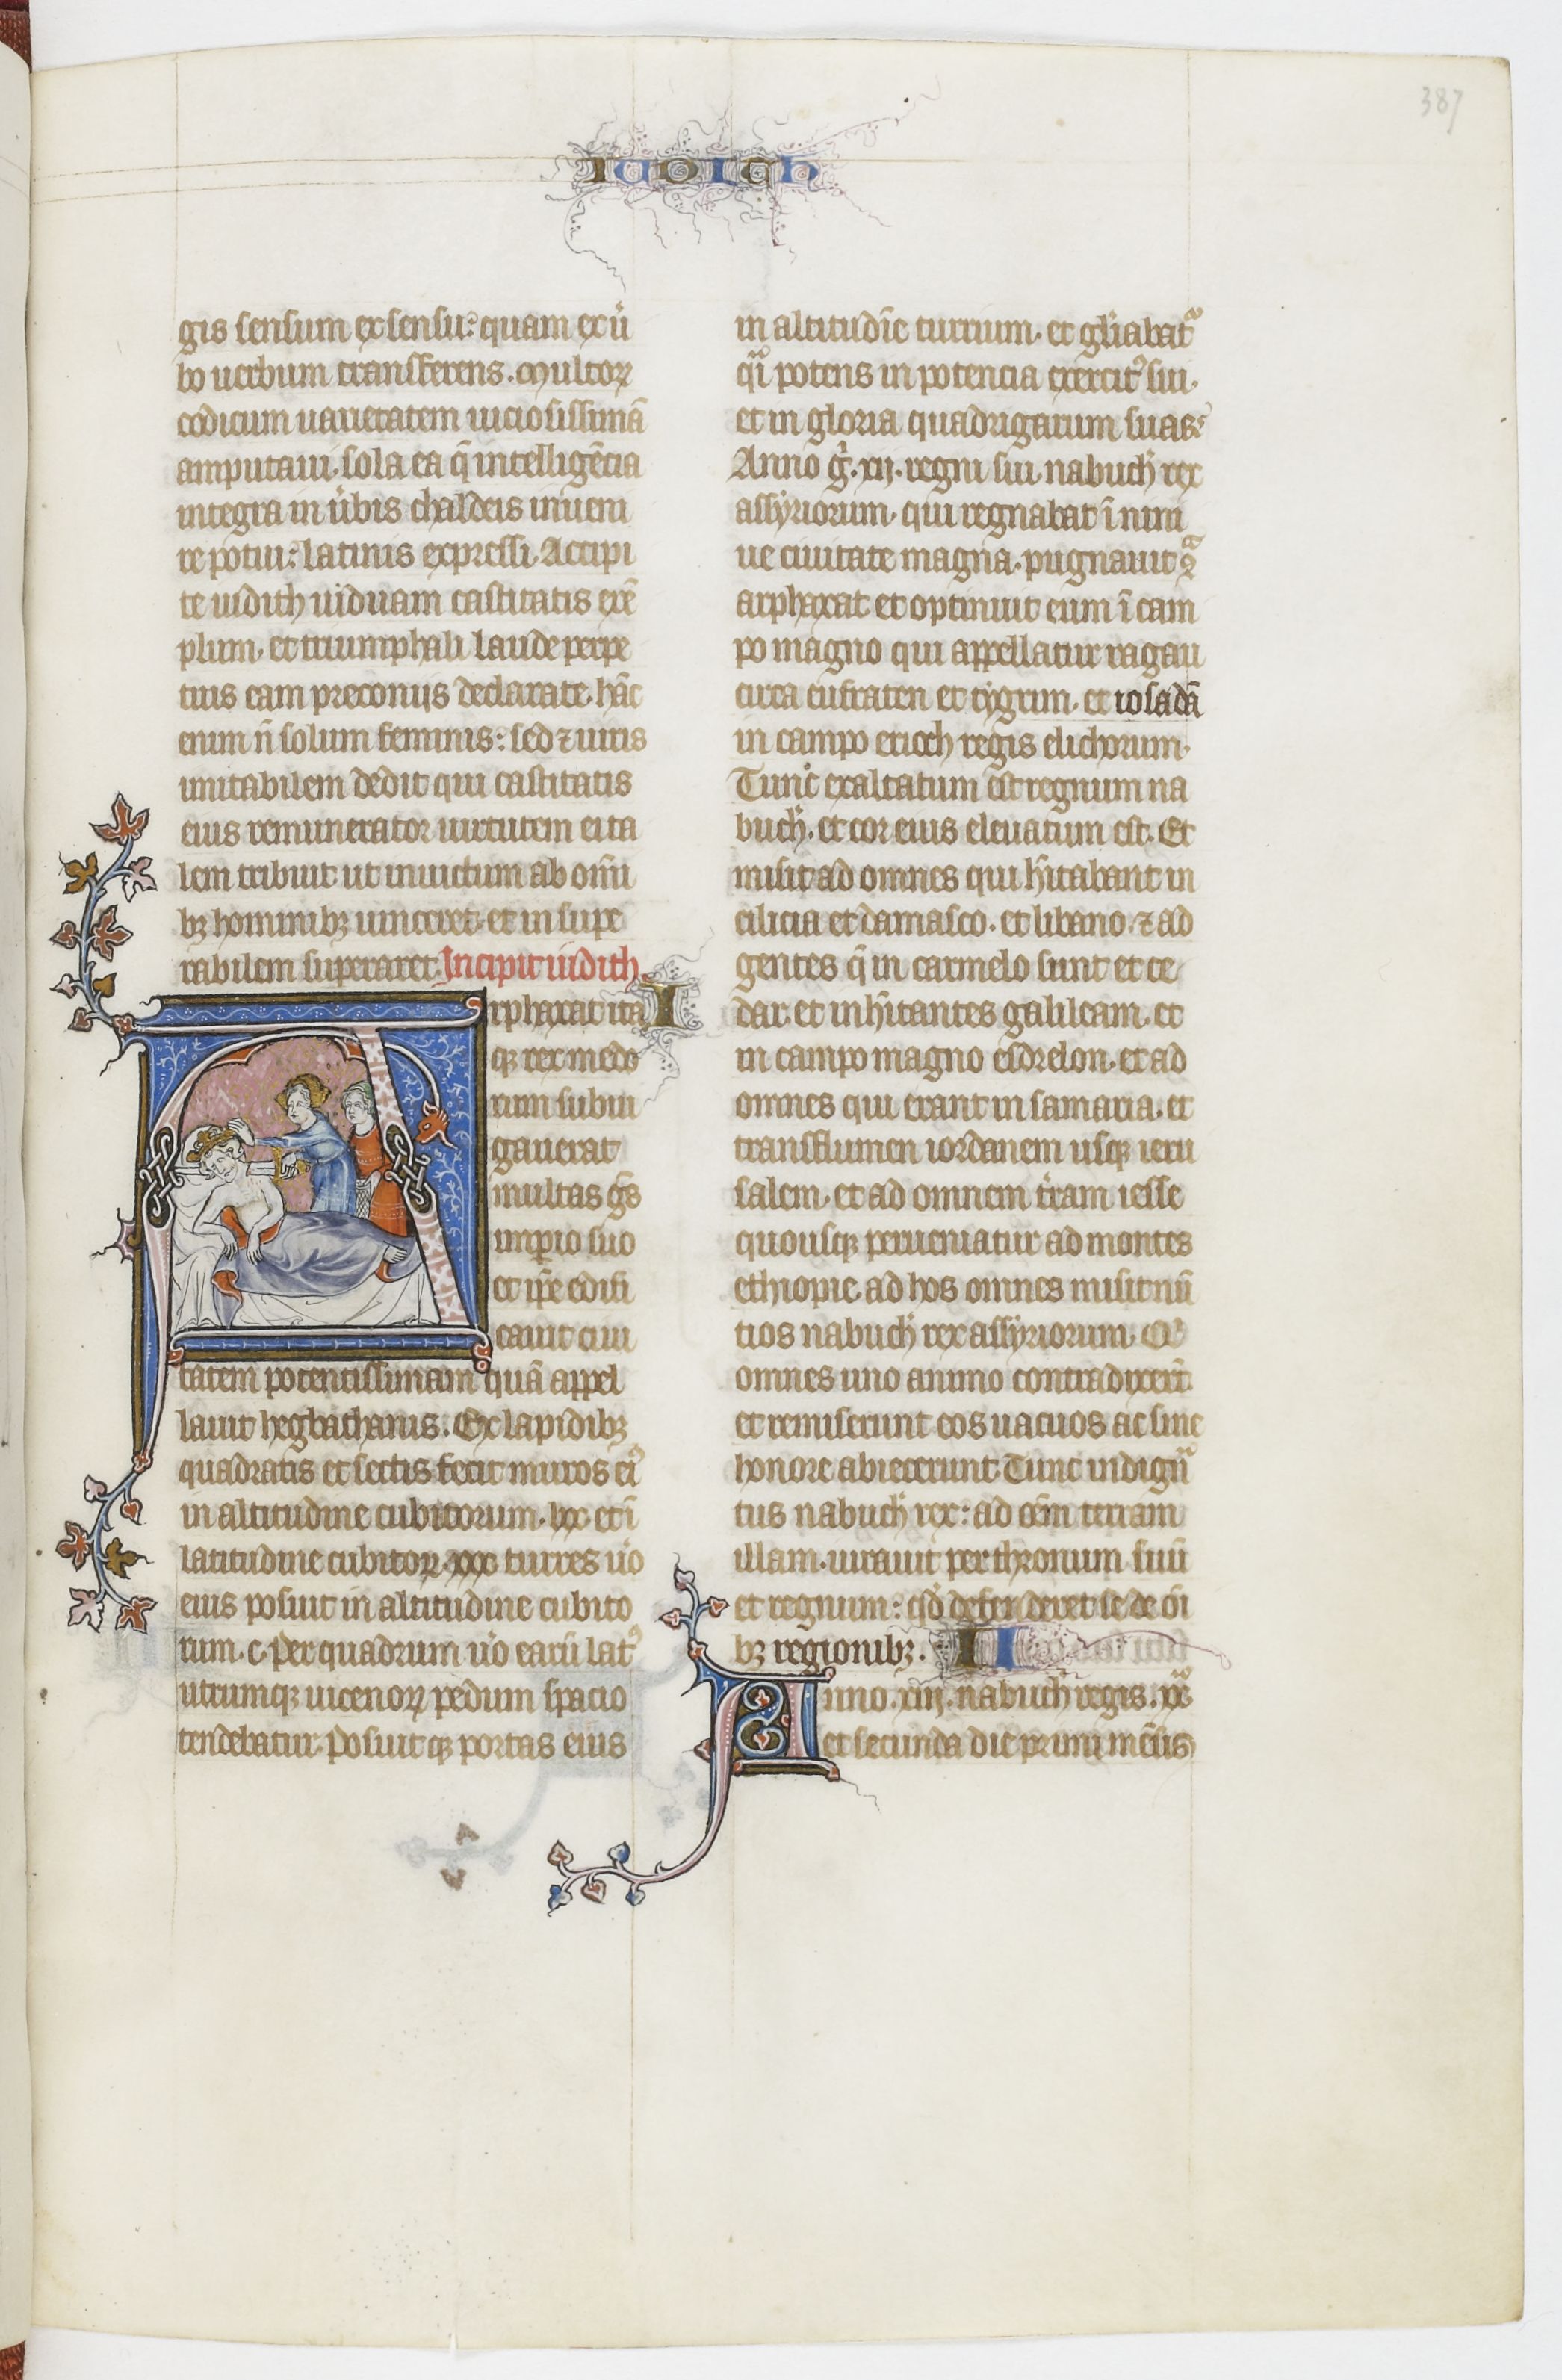 387
iudith
gis sensum ex sensu: quam ex ũ
bo uerbum transferens. Multoꝝ
codicum uarietatem uiciosissimã
amputaui. sola ea q̃ intelligẽcia
integra in ũbis chaldeis inueni
re potui: latinis expressi. Accipi
te iudith uiduam castitatis exẽ
plum. et triumphali laude perpe
tuis eam preconijs declarate. hãc
enim ñ solum feminis: sed ⁊ uiris
imitabilem dedit qui castitatis
eius remunerator uirtutem ei ta
lem tribuit ut inuictum ab om̃i
bꝫ hominibꝫ uinceret. et insupe
rabilem superaret. Incipit iudith.
Arphaxat ita I
qꝫ rex medo
rum subiu
gauerat
multas gẽs
imꝑio suo
et ip̃e edifi
cauit ciui
tatem potentissimam quã appel
lauit hegbathanis. Ex lapidibꝫ
quadratis et sectis fecit muros ei᾿
in altitudine cubitorum. lxx. et ĩ
latitudine cubitoꝝ. xxx. turres ũo
eius posuit in altitudine cubito
rum. c. per quadrum ũo earũ lat᾿
utrumqꝫ uicenoꝝ pedum spacio
tendebatur. Posuit qꝫ portas eius
in altitudĩe turrium. et gl̃iabatᷓ
qͣi potens in potencia exercit᾿ sui.
et in gloria quadrigarum suaꝝ.
Anno gͥ. xij. regni sui. nabuch̃ rex
assyriorum. qui regnabat ĩ nini
ue ciuitate magna. pugnauit ꝯͣ
arphaxat et optinuit eum ĩ cam
po magno qui appellatur ragau
circa eufraten et tygrim. et iosadã
in campo erioch regis elichorum.
Tunc exaltatum est regnum na
buch̃. et cor eius eleuatum est. Et
misit ad omnes qui h̃itabant in
cilicia et damasco. et libano. ⁊ ad
gentes q̃ in carmelo sunt et ce
dar. et inh̃itantes galileam. et
in campo magno esdrelon. et ad
omnes qui erant in samaria. et
trans flumen iordanem usqꝫ ieru
salem. et ad omnem t̃ram iesse
quousqꝫ perueniatur ad montes
ethiopie. ad hos omnes misit nũ
tios nabuch̃ rex assyriorum. Qͥ
omnes uno animo contradixer̃t.
et remiserunt eos uacuos ac sine
honore abiecerunt. Tunc indignͣ
tus nabuch̃ rex: ad oẽm terram
illam. iurauit per thronum suũ
et regnum: qͩ defenderet se de õi
bꝫ regionibꝫ. II
Anno. xiij. nabuch̃ regis. xxͣ
et secunda die primi mẽsis